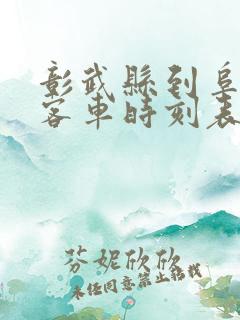 彰武縣到阜
客車時刻表
芬妮欣欣
未經同意禁止轉載